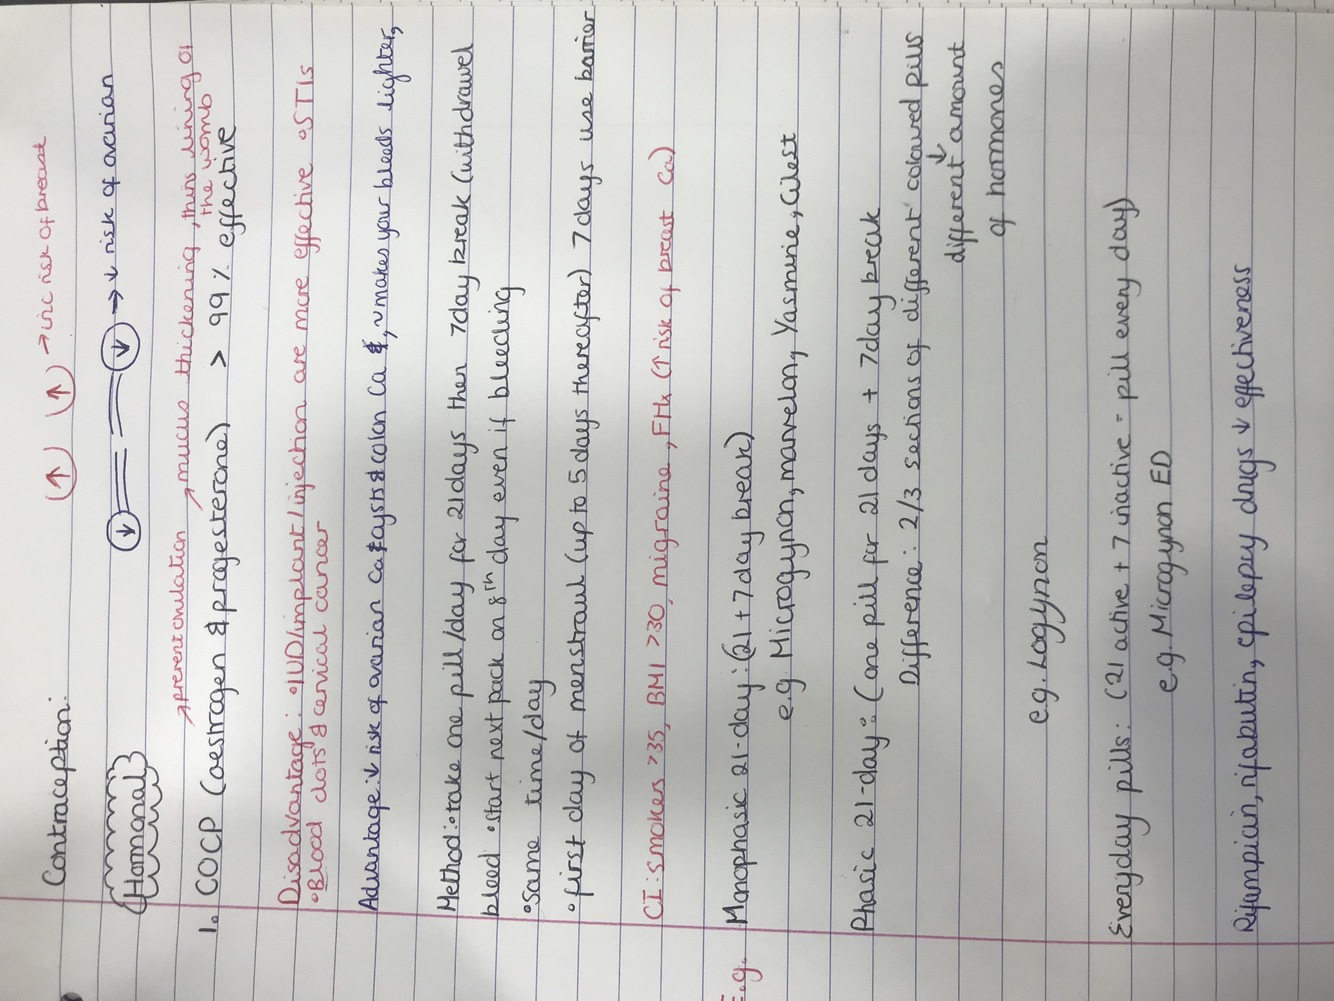 Contraception:
(↑) (↑) → inc risk of breast
Hormonal
(↓) (↓) → ↓ risk of ovarian
→ prevent ovulation → mucus thickening, thins lining of the womb
1. COCP (oestrogen & progesterone) > 99% effective
Disadvantage: • IUD/implant/injection are more effective • STIs
• Blood clots & cervical cancer
Advantage: ↓ risk of ovarian Ca & cysts & colon Ca &, makes your bleeds lighter,
Method: • take one pill/day for 21 days then 7 day break (withdrawel
bleed • start next pack on 8th day even if bleeding
• same time/day
• first day of menstraul (up to 5 days thereafter) 7 days use barrier
CI: smokes >35, BMI >30, migraine, FHx (↑ risk of breast Ca)
E.g. Monophasic 21-day: (21 + 7 day break)
e.g. Microgynon, marvelon, Yasmine, Cilest
Phasic 21-day: (one pill for 21 days + 7 day break
Difference: 2/3 sections of different coloured pills
↓
different amount
of hormones
e.g. Logynon
Everyday pills: (21 active + 7 inactive = pill every day)
e.g. Microgynon ED
Rifampicin, rifabutin, epilepsy drugs ↓ effectiveness